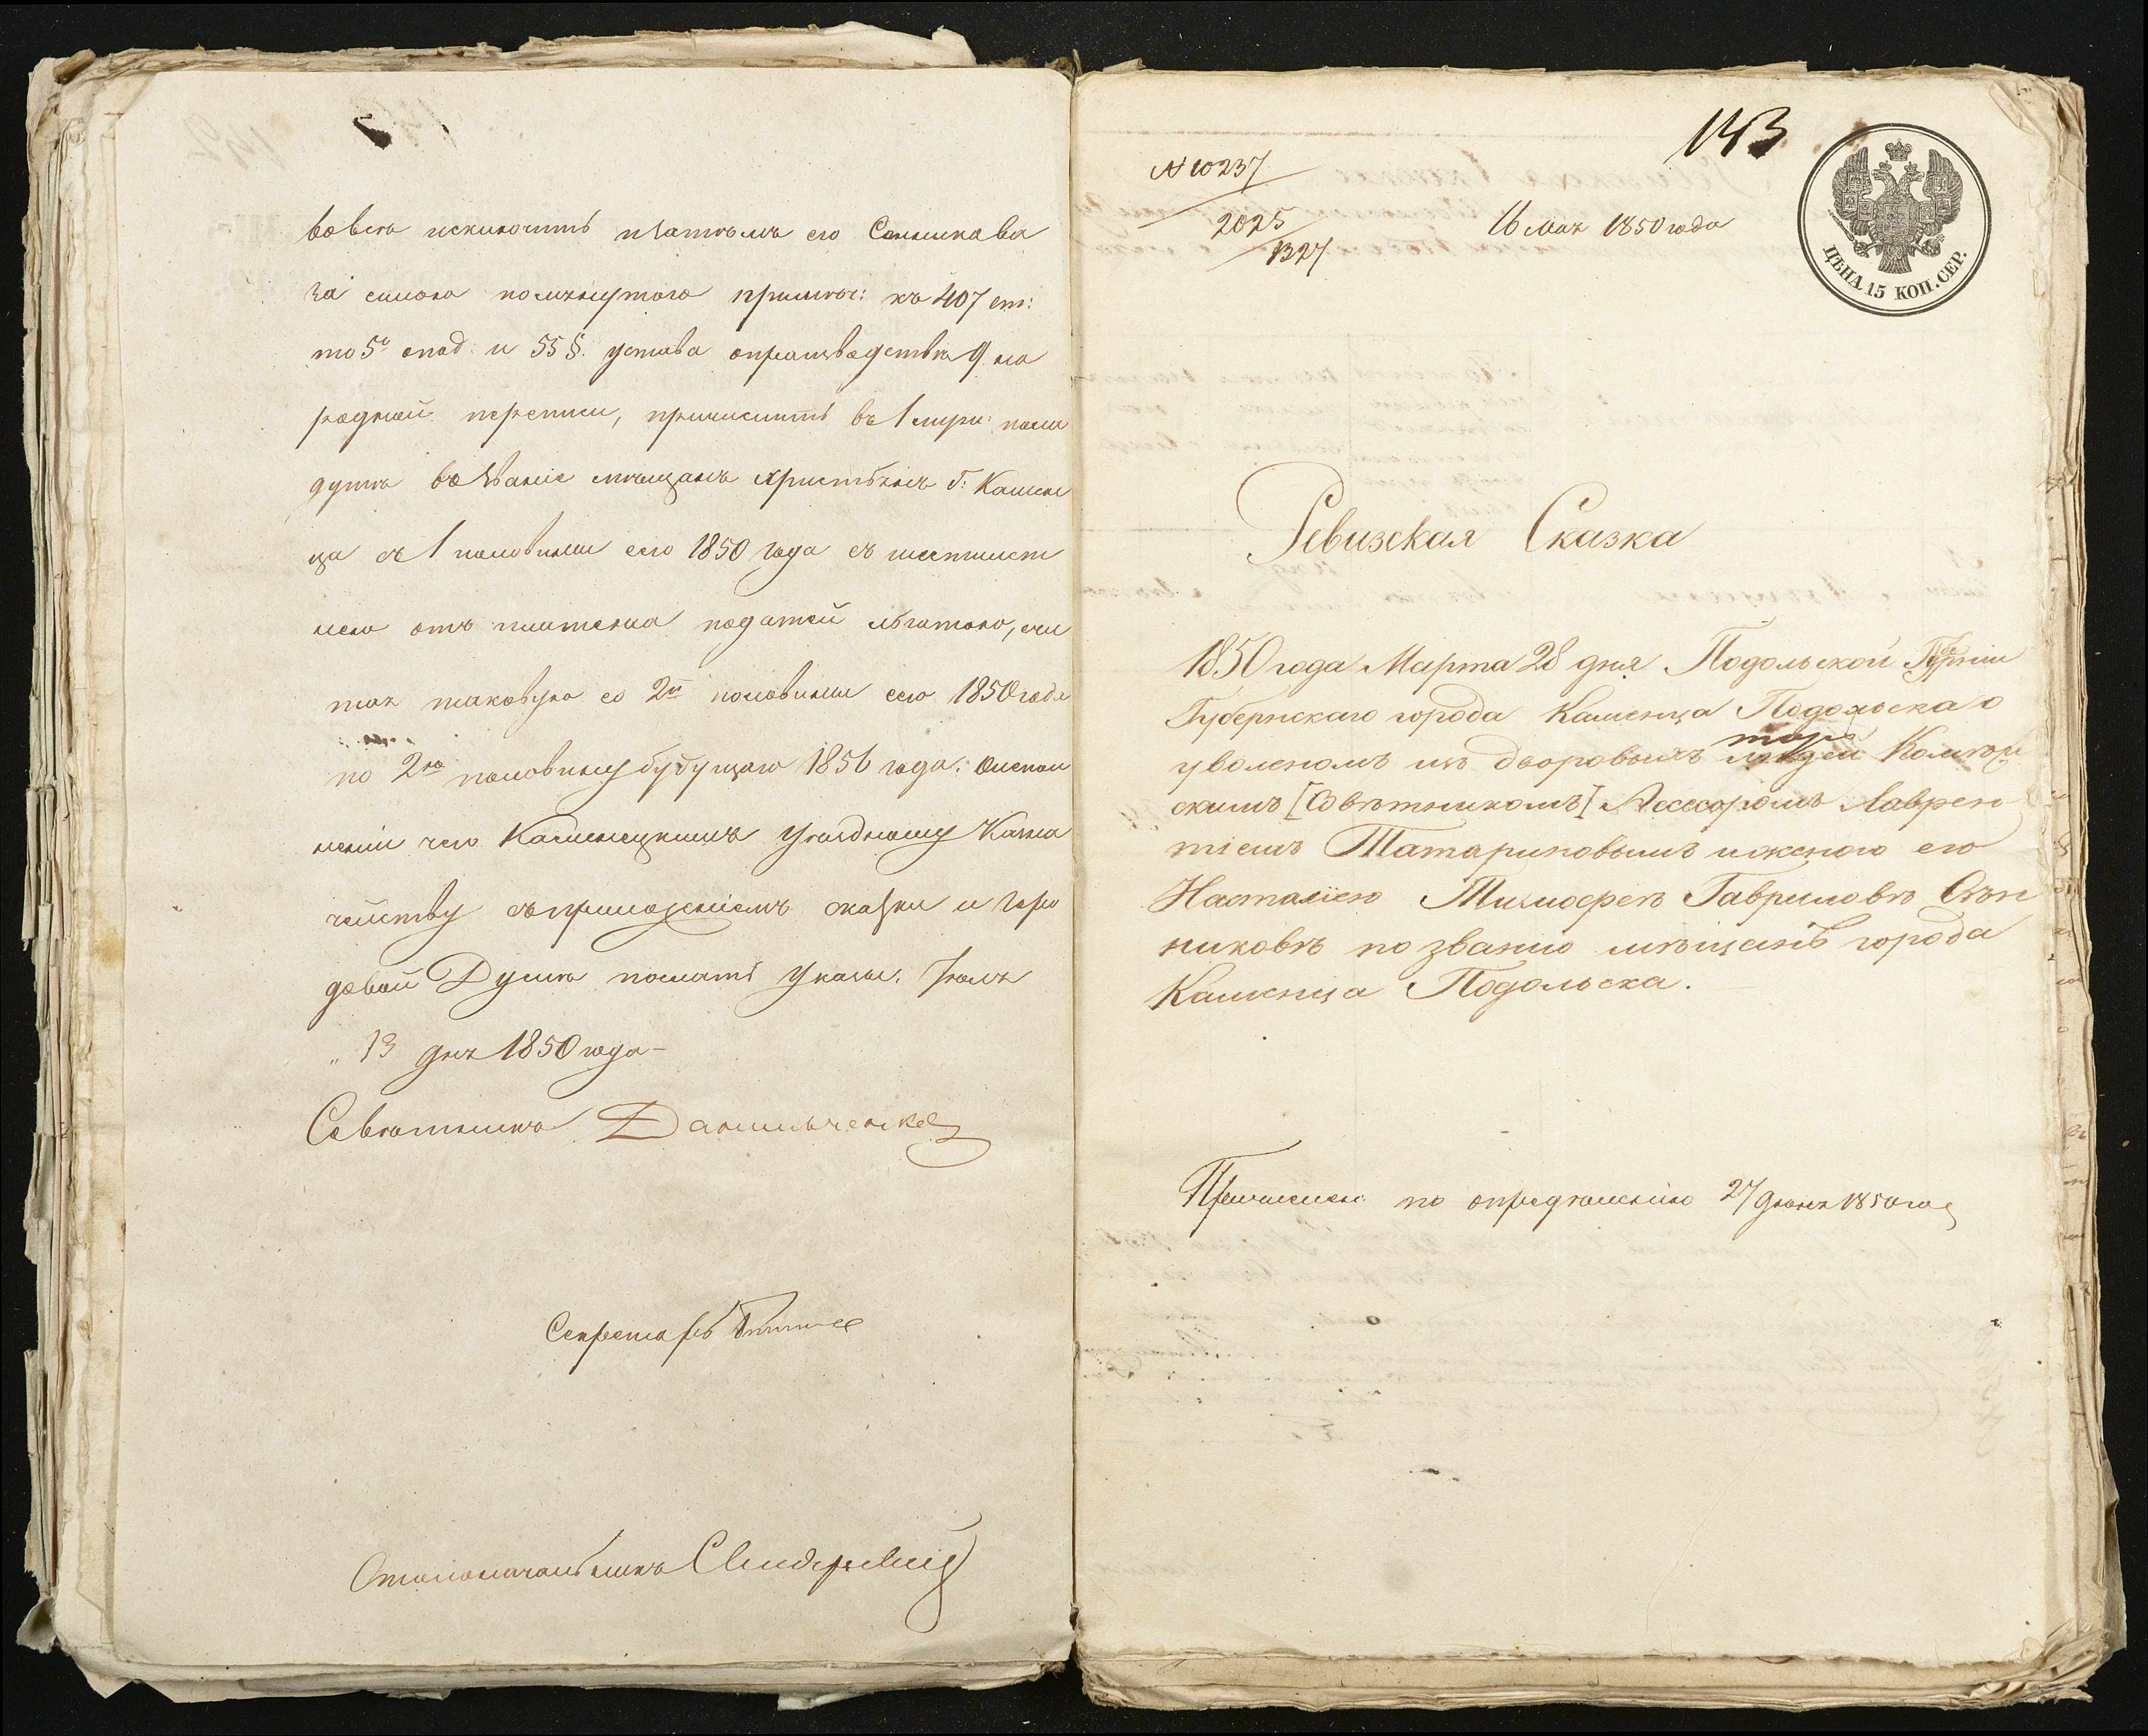 исключить а затѣмъ его Санникова
за силою помянутого примѣч: къ 407 ст:
то 5º спод. и 55 §. устава о производствѣ 9 на
родной переписи, причислить въ 1 мѣри: поме
душъ въ званіе мѣщанъ христіянъ г: Камен
ца съ 1 половины сего 1850 года съ шестилѣт
нею отъ платежа податей льготою, счи
тая таковую со 2й половины сего 1850 года
по 2ю половину будущаго 1856 года: О испол
неніи чего Каменецкимъ Уѣздному Казна
чейству съ приложеніемъ сказки и Горо
довой Думѣ послать Указы. Іюля
„ 13 дня 1850 года –
Совѣтникъ Данильченко
Секретарь
Столоначальникъ
143
№ 10237
2025
1327
16 Мая 1850 года
ЦѢНА 15 КОП. СЕР.
Ревизская Сказка
1850 года Марта 28 дня Подольской Губерніи
Губернскаго города Каменца Подольска о
уволеномъ изъ дворовыхъ людей Колеж
скимъ [Совѣтникомъ] Ассесоромъ Лаврен
тіемъ Татариновымъ и женою его
Наталіею Тимофеѣ Гавриловѣ Сѣн
никовѣ по званію мѣщанъ города
Каменца Подольска.
Причислен: по опредѣленію 27 Іюня 1850 год